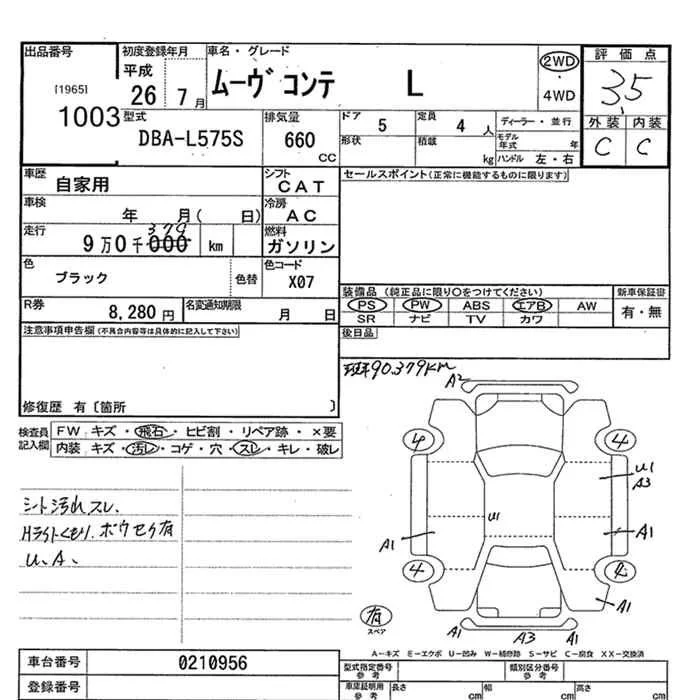 出品番号
[1965]
1003
初度登録年月
平成
26 7月
車名・グレード
ムーヴ コンテ L
2WD
・
4WD
評価点
3.5
外装 内装
C C
型式
DBA-L575S
排気量
660
CC
ドア 5
定員 4 人
ディーラー・並行
形状
積載
kg
モデル年式 年
ハンドル 左・右
車歴
自家用
シフト
CAT
セールスポイント(正常に機能するものに限ります)
車検
年 月( 日)
冷房
AC
走行
379
9万0千000 km
燃料
ガソリン
色
ブラック
色替
色コード
X07
装備品 (純正品に限り○をつけてください)
新車保証書
PS PW ABS エアB AW
有・無
SR ナビ TV カワ
R券
8,280 円
名変通知期限
月 日
後日品
注意事項申告欄(不具合内容等は具体的に記入して下さい)
修復歴 有〔箇所 〕
検査員記入欄
FW キズ・飛石・ヒビ割・リペア跡・×要
内装 キズ・汚レ・コゲ・穴・スレ・キレ・破レ
90.379KM
A2
4 4
U1
A3
U1
A1 A1
4 4
A1
有
スペア
A1 A3 A1
シート汚れスレ.
Hライトくもり.ボウセイ有
U、A、
A－キズ E－エクボ U－凹み W－補修跡 S－サビ C－腐食 XX－交換済
車台番号
0210956
登録番号
型式指定番号
参考
類別区分番号
参考
車庫証明用
参考
長さ cm
幅 cm
高さ cm